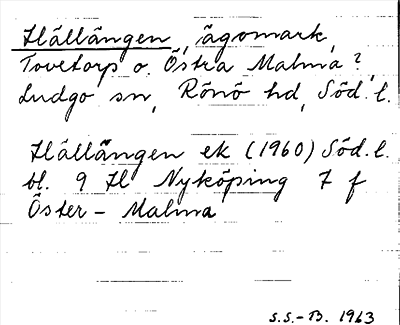 Hällängen, ägomark,
Tovetorp o. Östra Malma?,
Ludgo sn, Rönö hd, Söd. l.
Hällängen ek (1960) Söd. l.
bl. 9 H Nyköping 7 f
Öster - Malma
S.S.-B. 1963